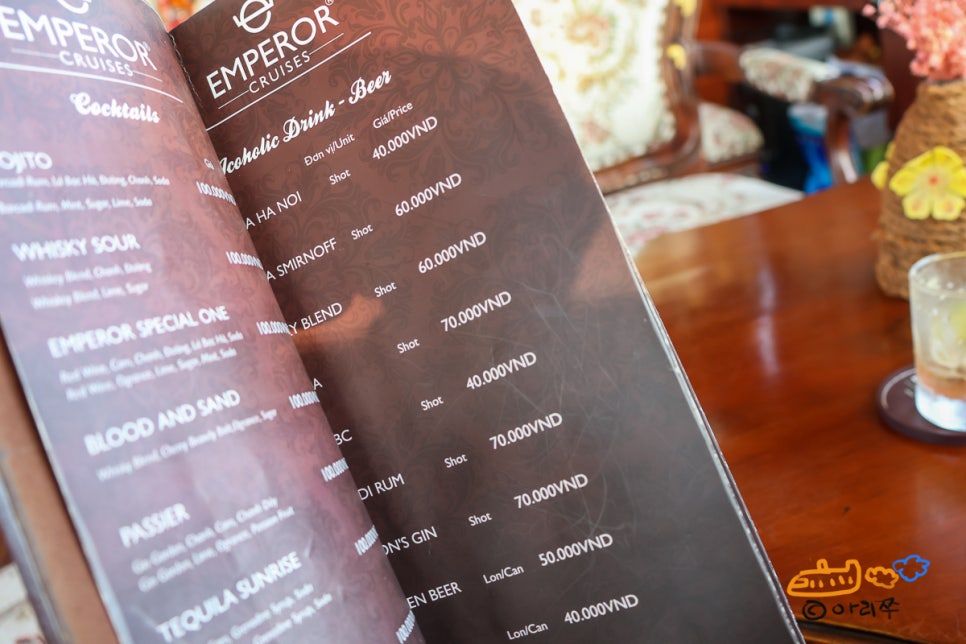 EMPEROR
CRUISES
Cocktails
OJITO
100.000VND
Bacadi Rum, Lá Bạc Hà, Đường, Chanh, Soda
Bacadi Rum, Mint, Sugar, Lime, Soda
WHISKY SOUR
100.000
Whisky Blend, Chanh, Đường
Whisky Blend, Lime, Sugar
EMPEROR SPECIAL ONE
100.000
Red Wine, Cam, Chanh, Đường, Lá Bạc Hà, Soda
Red Wine, Lime, Sugar, Mint, Soda
BLOOD AND SAND
100.000
Whisky Blend, Cherry Brandy Sugar
PASSIER
100.000
Gin Gordon, Chanh, Cam, Chanh Dây
Gin Gordon, Lime, Passion Fruit
TEQUILA SUNRISE
100.000
100.000
EMPEROR®
CRUISES
lcoholic Drink - Beer
Đơn vị/Unit Giá/Price
A HA NOI Shot 40.000VND
A SMIRNOFF Shot 60.000VND
KY BLEND Shot 60.000VND
Shot 70.000VND
A Shot 40.000VND
BC Shot 70.000VND
DI RUM Shot 70.000VND
ON'S GIN Shot 50.000VND
EN BEER Lon/Can 40.000VND
Lon/Can
© 아리쭈